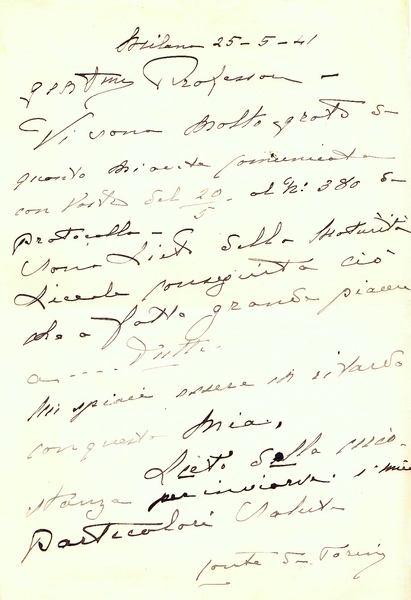 Milano 25-5-41
gentmo Professore -
Vi sono molto grato di
quanto mi avete comunicato
con Vostra del 20/5 - al N: 380 di
protocollo -
Sono Lieto della Maturità
Liceale conseguita ciò
che a fatto grande piacere
a .... Tutti.
Mi spiace essere in ritardo
con questa Mia,
Lieto della circo
stanza per inviarvi i miei
Particolari Saluti
Conte di Torino